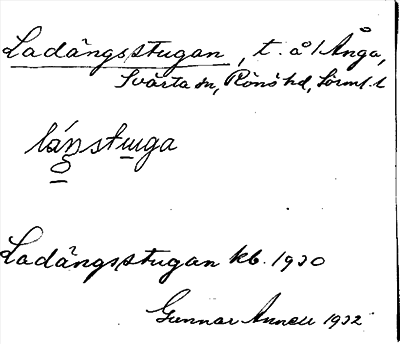 Ladängsstugan, t. å/Ånga,
Svärta sn, Rönö hd, Sörml. l
lá̱ŋ̱stu̱ga
Ladängsstugan kb. 1930
Gunnar Annell 1932